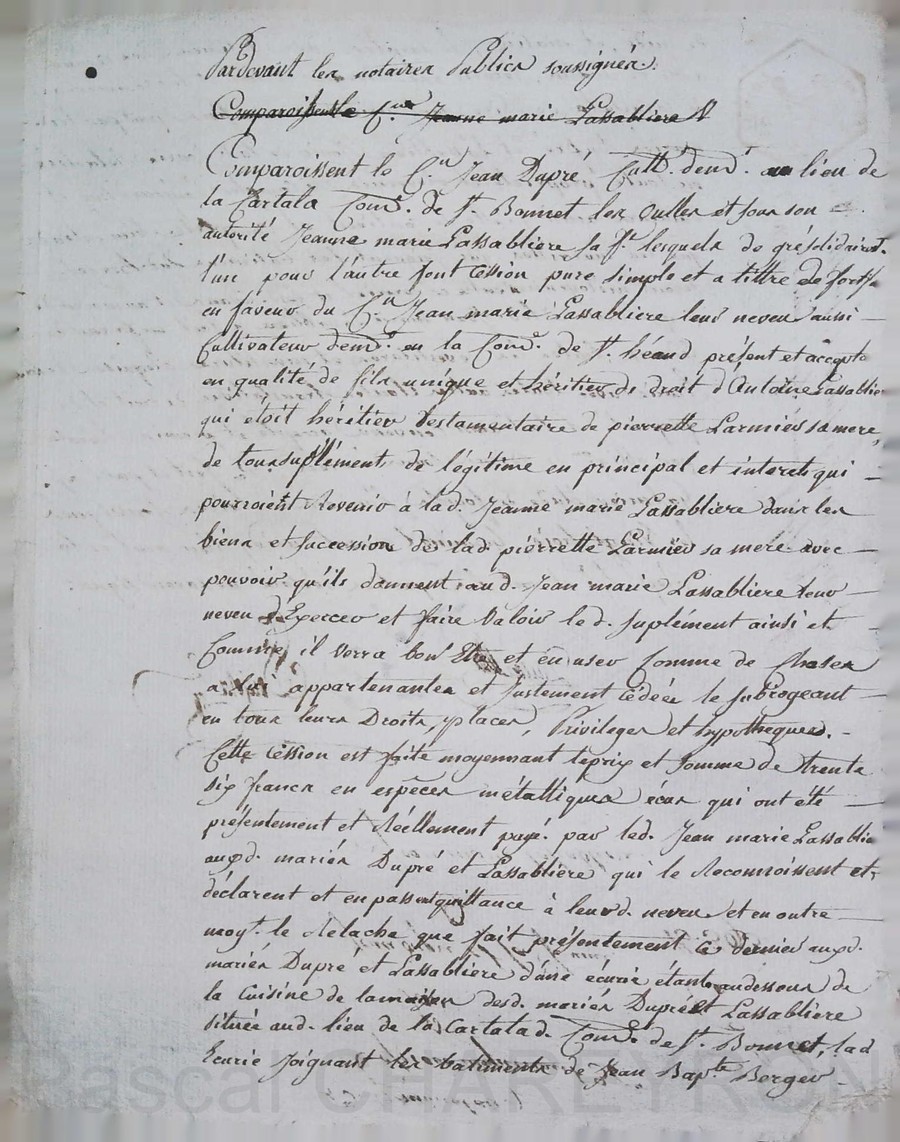 Pardevant les notaires Publics soussignés.
Comparoissent le C.en Jeanne marie Lassabliere
Comparoissent le C.en Jean Dupré Cult.r dem.t au lieu de
la Cartala Com.e de S.t Bonnet les oulles et sous son
autorité Jeanne marie Lassabliere sa f.e lesquels de gré solidairem.t
l'un pour l'autre font Cession pure simple et a tittre de forfs
en faveur du C.en Jean marie Lassabliere leur neveu aussi
Cultivateur dem.t en la Com.e de S.t héand présent et accepte
en qualité de fils unique et héritier de droit d'Antoine Lassablie
qui étoit héritier testamentaire de pierrette Larmier sa mere,
de tous suplément de légitime en principal et interets qui
pourroient Revenir à lad. Jeanne marie Lassabliere dans les
biens et succession de lad. pierrette Larmier sa mere avec
pouvoir qu'ils donnent aud. Jean marie Lassabliere leur
neveu d'Exercer et faire Valoir led. suplément ainsi et
Comme il verra bon Etre et en user Comme de Choses
a lui appartenantes et justement Cédées le subrogeant
en tous leurs Droits, places, Privileges et hypotheques.
Cette Cession est faite moyennant le prix et somme de trente
six francs en espèces métalliques écus qui ont été
présentement et Réellement payé par led. Jean marie Lassablie
auxd. mariés Dupré et Lassabliere qui le Reconnoissent et
déclarent et en passent quittance à leurd. neveu et en outre
moy.t le Relache que fait présentement Ce dernier auxd.
mariés Dupré et Lassabliere d'une écurie étant audessous de
la Cuisine de la maison desd. mariés Dupré et Lassabliere
située aud. lieu de la Cartala d. Com.e de S.t Bonnet, lad
Ecurie joignant les batiments de Jean Bap.te Berger
Pascal CHAREYRON